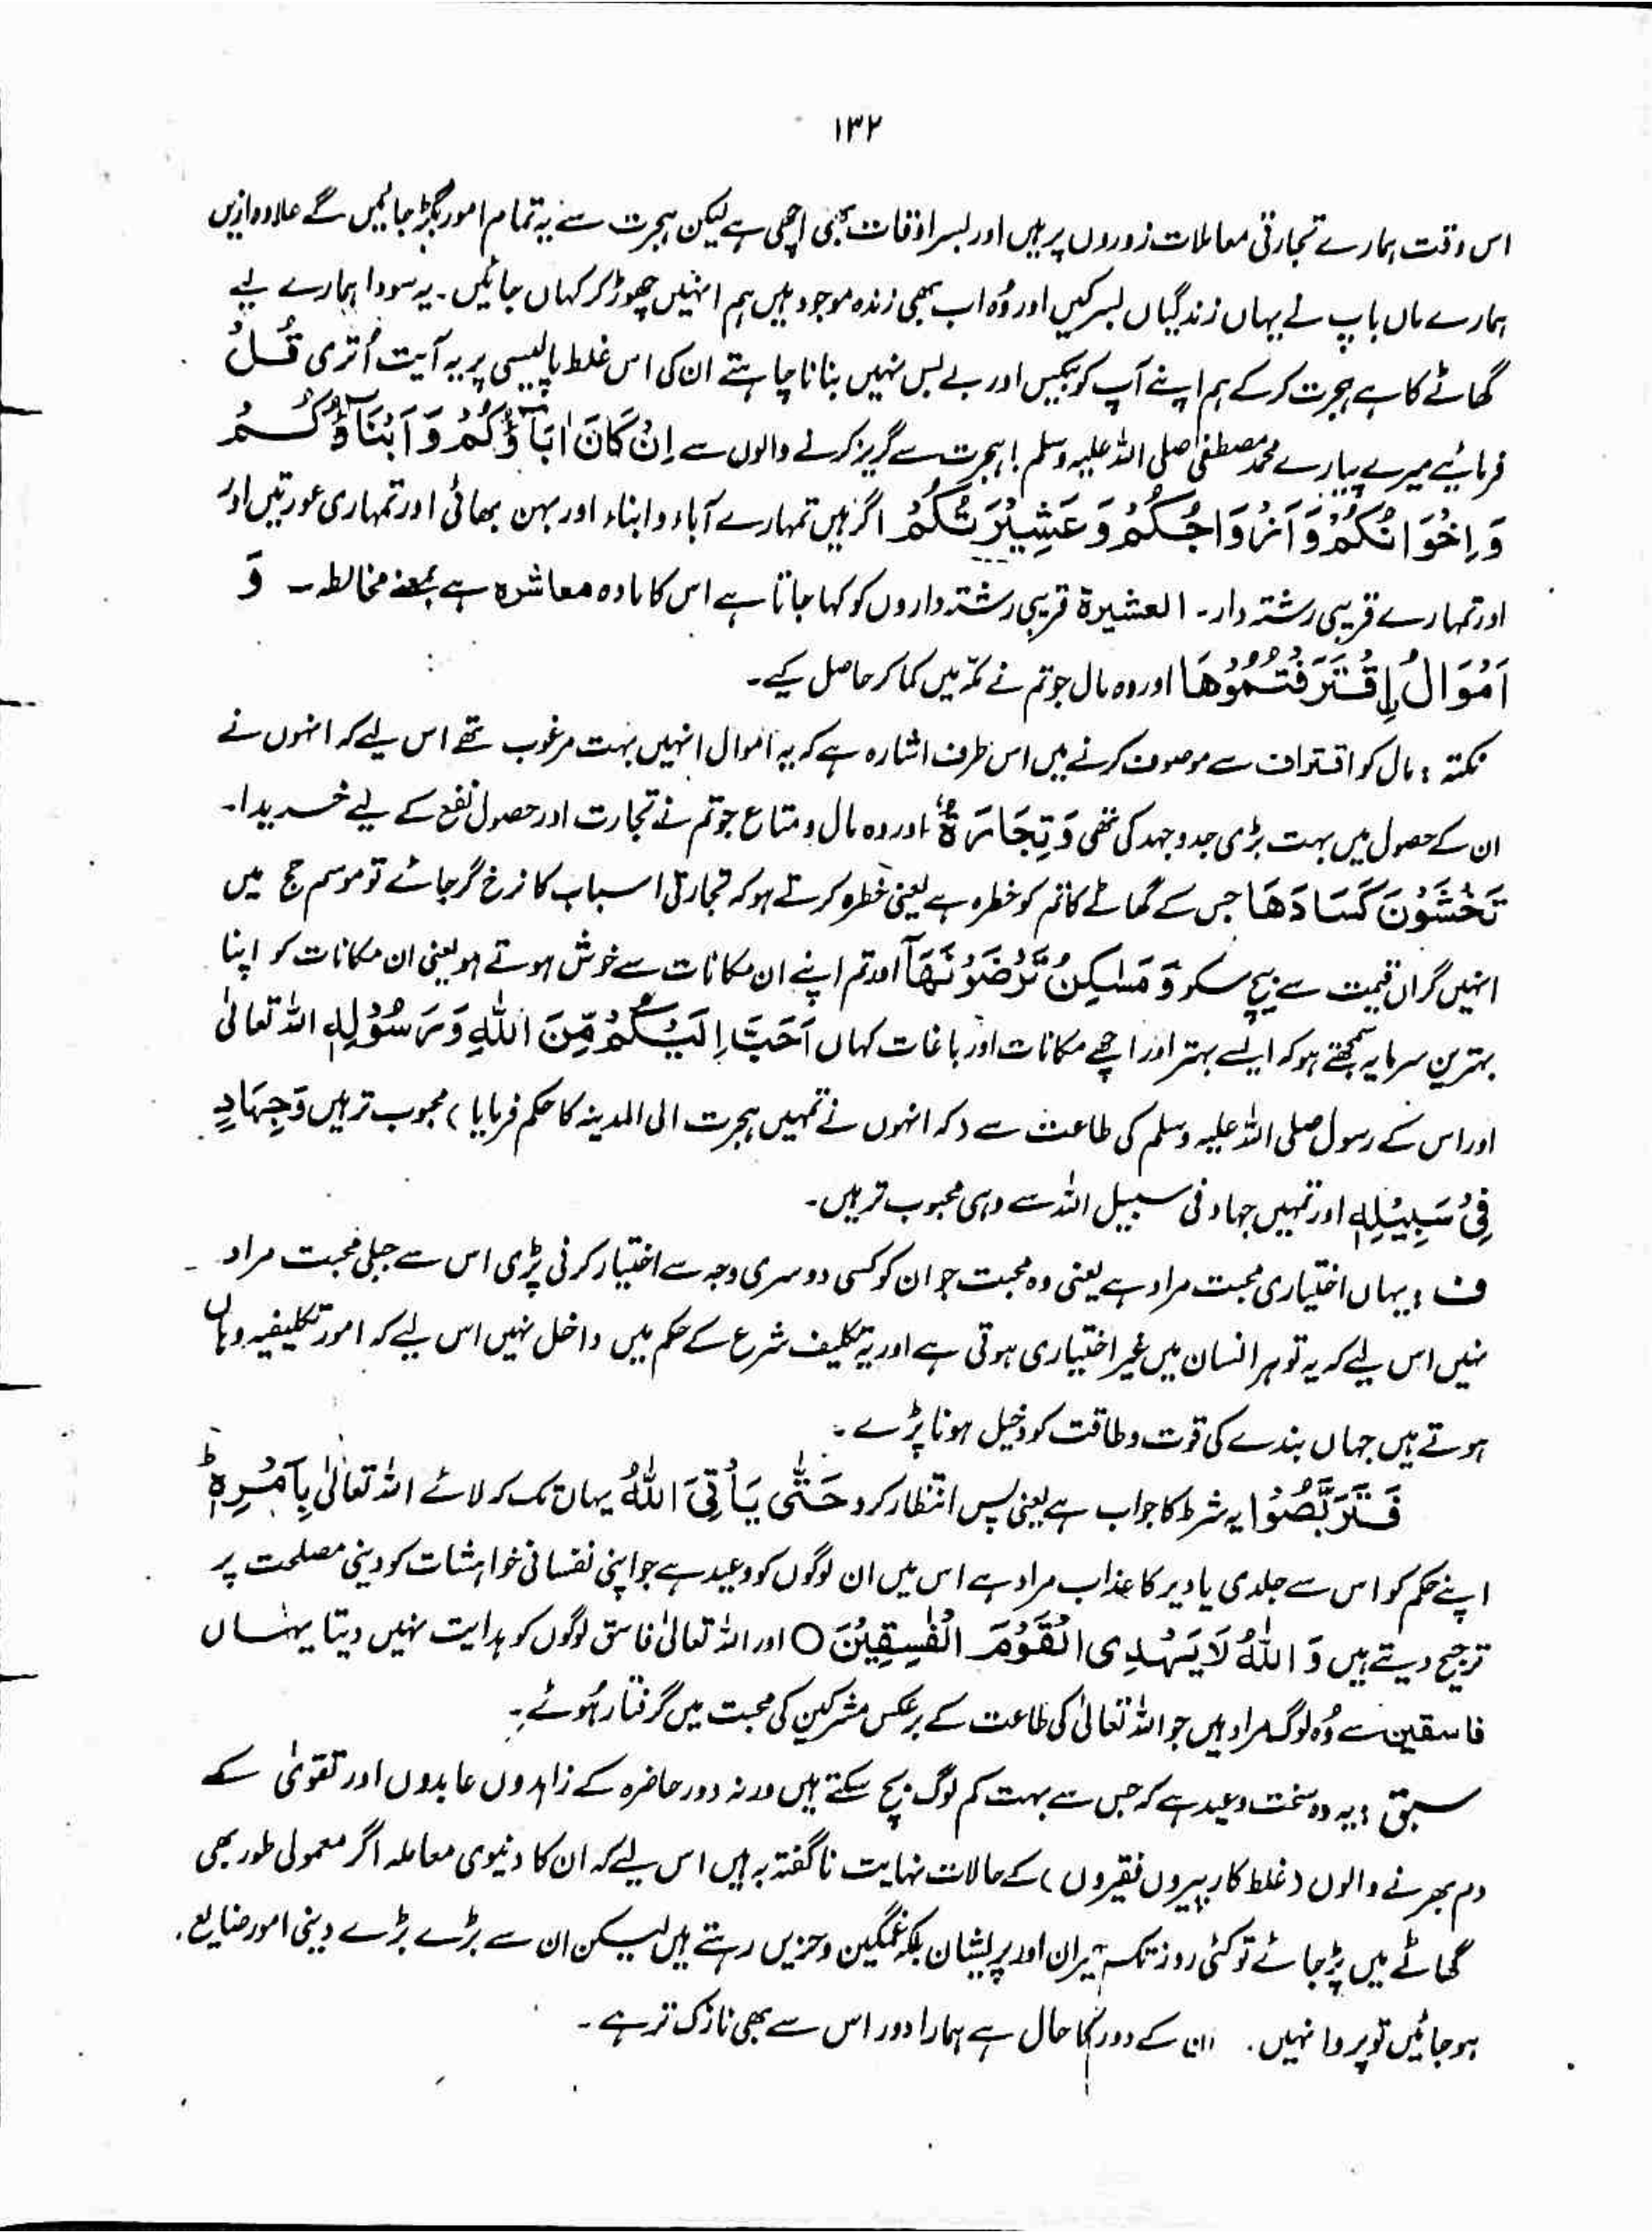 ۱۳۲
اس وقت ہمارے تجارتی معاملات زوروں پر ہیں اور بسر اوقات بھی اچھی ہے لیکن ہجرت سے یہ تمام امور بگڑ جائیں گے علاوہ ازیں
ہمارے ماں باپ نے یہاں زندگیاں بسر کیں اور وُہ اب بھی زندہ موجود ہیں ہم انہیں چھوڑ کر کہاں جائیں۔ یہ سودا ہمارے لیے
گھاٹے کا ہے ہجرت کر کے ہم اپنے آپ کو بیکس اور بے بس نہیں بنانا چاہتے ان کی اس غلط پالیسی پر یہ آیت اُتری قُلْ
فرمائیے میرے پیارے محمد مصطفیٰ صلی اللہ علیہ وسلم! ہجرت سے گریز کرنے والوں سے اِنْ كَانَ اٰبَآؤُكُمْ وَ اَبْنَآؤُكُمْ
وَ اِخْوَانُكُمْ وَ اَزْوَاجُكُمْ وَ عَشِيْرَتُكُمْ اگر ہیں تمہارے آباء و ابناء اور بہن بھائی اور تمہاری عورتیں اور
اور تمہارے قریبی رشتہ دار۔ العشیرة قریبی رشتہ داروں کو کہا جاتا ہے اس کا مادہ معاشرہ ہے بمعنے مخالطہ۔ وَ
اَمْوَالُ اِقْتَرَفْتُمُوْهَا اور وہ مال جو تم نے مکہ میں کما کر حاصل کیے۔
نکتہ : مال کو اقتراف سے موصوف کرنے میں اس طرف اشارہ ہے کہ یہ اموال انہیں بہت مرغوب تھے اس لیے کہ انہوں نے
ان کے حصول میں بہت بڑی جدوجہد کی تھی وَ تِجَارَةٌ اور وہ مال و متاع جو تم نے تجارت اور حصول نفع کے لیے خریدا۔
تَخْشَوْنَ كَسَادَهَا جس کے گھاٹے کا تم کو خطرہ ہے یعنی خطرہ کرتے ہو کہ تجارتی اسباب کا نرخ گر جائے تو موسم حج میں
انہیں گراں قیمت سے بیچ سکو وَ مَسٰكِنُ تَرْضَوْنَهَآ اور تم اپنے ان مکانات سے خوش ہوتے ہو یعنی ان مکانات کو اپنا
بہترین سرمایہ سمجھتے ہو کہ ایسے بہتر اور اچھے مکانات اور باغات کہاں اَحَبَّ اِلَيْكُمْ مِّنَ اللّٰهِ وَ رَسُوْلِهٖ اللہ تعالیٰ
اور اس کے رسول صلی اللہ علیہ وسلم کی طاعت سے (کہ انہوں نے تمہیں ہجرت الی المدینہ کا حکم فرمایا) محبوب تر ہیں وَ جِهَادٍ
فِيْ سَبِيْلِهٖ اور تمہیں جہاد فی سبیل اللہ سے وہی محبوب تر ہیں۔
ف : یہاں اختیاری محبت مراد ہے یعنی وہ محبت جو ان کو کسی دوسری وجہ سے اختیار کرنی پڑی اس سے جبلی محبت مراد
نہیں اس لیے کہ یہ تو ہر انسان میں غیر اختیاری ہوتی ہے اور یہ تکلیف شرع کے حکم میں داخل نہیں اس لیے کہ امور تکلیفیہ وہاں
ہوتے ہیں جہاں بندے کی قوت و طاقت کو دخیل ہونا پڑے۔
فَتَرَبَّصُوْا یہ شرط کا جواب ہے یعنی پس انتظار کرو حَتّٰى يَاْتِيَ اللّٰهُ یہاں تک کہ لائے اللہ تعالیٰ بِاَمْرِهٖ ط
اپنے حکم کو اس سے جلدی یا دیر کا عذاب مراد ہے اس میں ان لوگوں کو وعید ہے جو اپنی نفسانی خواہشات کو دینی مصلحت پر
ترجیح دیتے ہیں وَ اللّٰهُ لَا يَهْدِى الْقَوْمَ الْفٰسِقِيْنَ ○ اور اللہ تعالیٰ فاسق لوگوں کو ہدایت نہیں دیتا یہاں
فاسقین سے وُہ لوگ مراد ہیں جو اللہ تعالیٰ کی طاعت کے برعکس مشرکین کی محبت میں گرفتار ہُوئے۔
سبق : یہ وہ سخت وعید ہے کہ جس سے بہت کم لوگ بچ سکتے ہیں ورنہ دور حاضرہ کے زاہدوں عابدوں اور تقویٰ کے
دم بھرنے والوں (غلط کار پیروں فقیروں) کے حالات نہایت ناگفتہ بہ ہیں اس لیے کہ ان کا دنیوی معاملہ اگر معمولی طور بھی
گھاٹے میں پڑ جائے تو کئی روز تک حیران اور پریشان بلکہ غمگین و حزیں رہتے ہیں لیکن ان سے بڑے بڑے دینی امور ضایع
ہو جائیں تو پروا نہیں۔ ان کے دور کا حال ہے ہمارا دور اس سے بھی نازک تر ہے۔